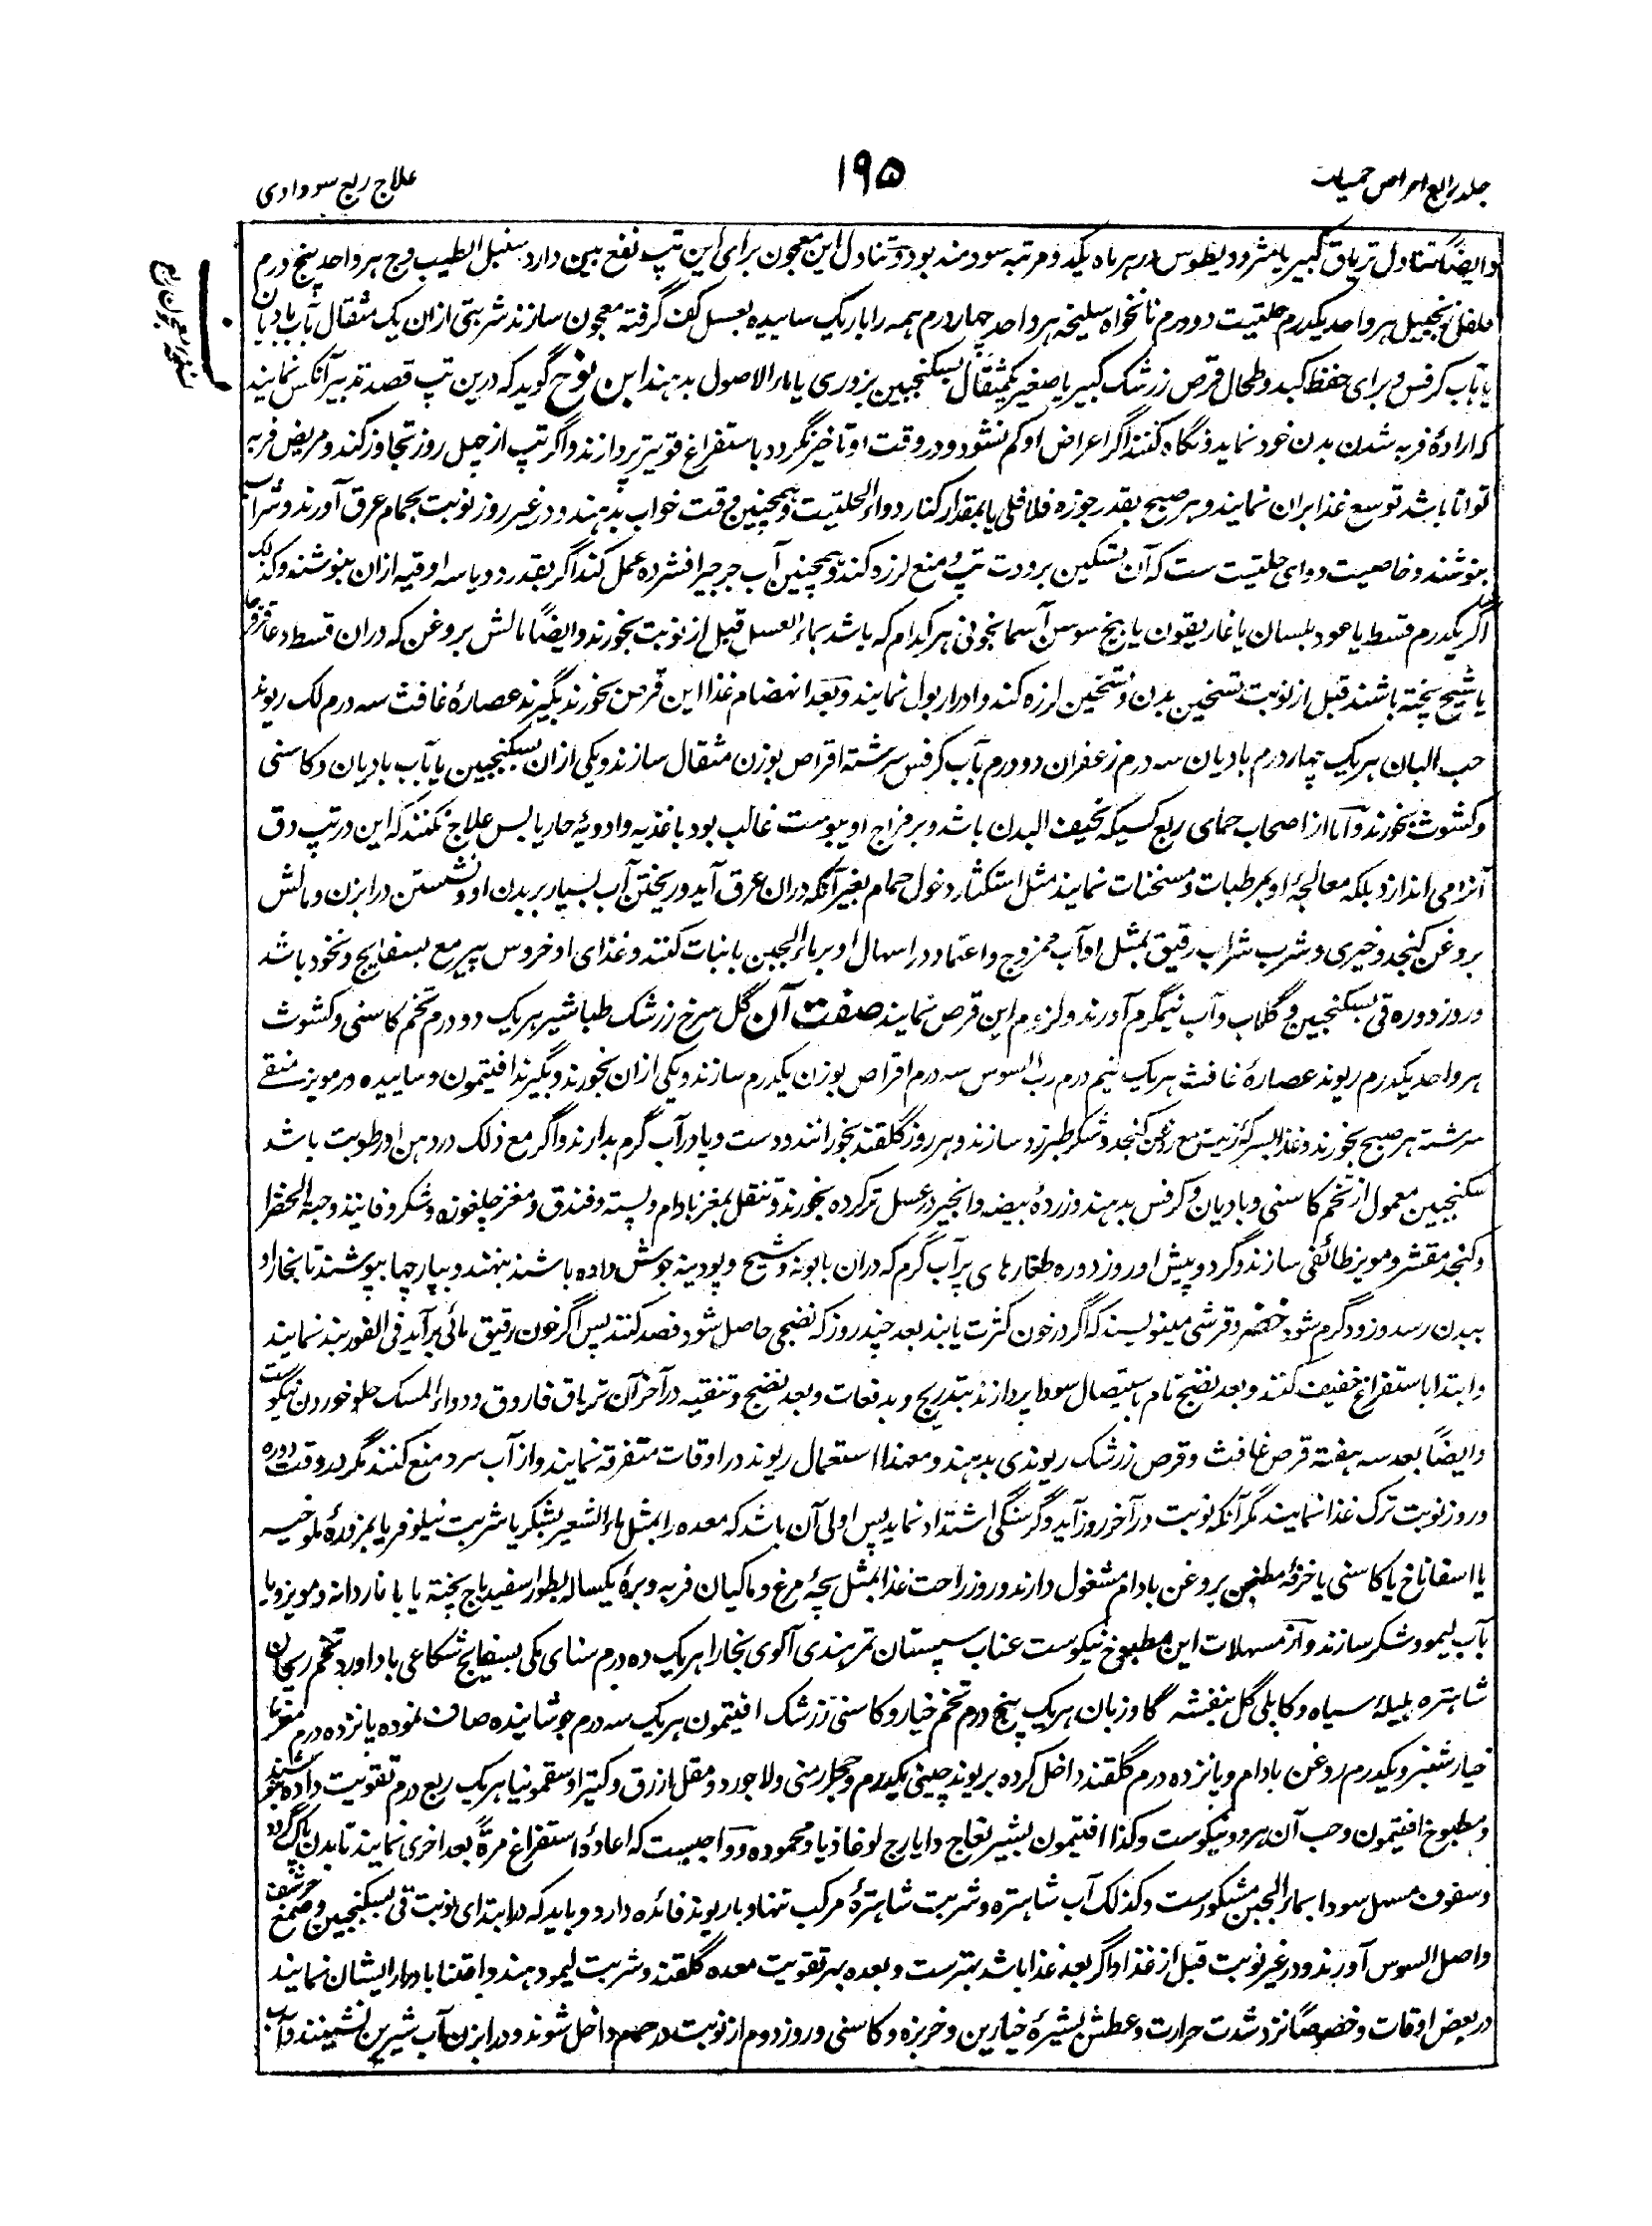 جلد رابع امراض حمیات
۱۹۵
علاج ربع سوداوی
وایضاً تناول تریاق کبیر یا مثرودیطوس در هر ماه یکدو مرتبه سودمند بود و تناول این معجون برای این تپ نفع بین دارد سنبل الطیب وج هر واحد پنج درم
فلفل زنجبیل هر واحد یکدرم حلتیت دو درم نانخواه سلیخه هر واحد چهار درم همه را باریک سائیده بعسل کف گرفته معجون سازند شربتی ازان یک مثقال بآب بادیان
یا بآب کرفس و برای حفظ کبد و طحال قرص زرشک کبیر یا صغیر یکمثقال بسکنجبین بزوری یا ماءالاصول بدهند ابن نوح گوید که درین تپ قصد تدبیر آنکس نمایند
که ارادۀ فربه شدن بدن خود نماید و نگاه کنند اگر اعراض او کم نشود و در وقت او تاخیر نگردد باستفراغ قویتر پردازند و اگر تپ از چهل روز تجاوز کند و مریض فربه
توانا باشد توسع غذا بران نمایند و هر صبح بقدر جوزه فلافلی یا بمقدار کنار دواء الحلتیت و همچنین وقت خواب بدهند و در غیر روز نوبت بحمام عرق آورند و شراب
بنوشند و خاصیت دوای حلتیت ست که آن تسکین برودت تپ و منع لرزه کند و همچنین آب جرجیر افشرده عمل کند اگر بقدر دو یا سه اوقیه ازان بنوشند و کذلک
اگر یکدرم قسط یا عود بلسان یا غاریقون یا بیخ سوسن آسمانجونی هر کدام که باشد بماء العسل قبل از نوبت بخورند و ایضاً مالش بروغن که دران قسط و عاقرقرحا
یا شیح پخته باشند قبل از نوبت تسخین بدن و تسخین لرزه کند و ادرار بول نمایند و بعد انهضام غذا این قرص بخورند بگیرند عصارۀ غافث سه درم لک ریوند
حب البان هر یک چهار درم بادیان سه درم زعفران دو درم بآب کرفس سرشته اقراص بوزن مثقال سازند و یکی ازان بسکنجبین یا بآب بادیان و کاسنی
و کشوث بخورند و اما از اصحاب حمای ربع کسیکه نحیف البدن باشد و بر مزاج او یبوست غالب بود باغذیه و ادویۀ حار یابس علاج نکنند که این در تپ دق
آنرا می اندازد بلکه معالجۀ او بمرطبات و مسخنات نمایند مثل استکثار دخول حمام بغیر آنکه دران عرق آید و ریختن آب بسیار بر بدن او و نشستن در ابزن و مالش
بروغن کنجد و خیری و شرب شراب رقیق بمثل او آب ممزوج و اعتماد در اسهال او بر ماء الجبن با نبات کنند و غذای او خروس پیر مع بسفایج و نخود باشد
و روز دوره قی بسکنجبین و گلاب و آب نیمگرم آورند و لزوم این قرص نمایند صفت آن گل سرخ زرشک طباشیر هر یک دو درم تخم کاسنی و کشوث
هر واحد یکدرم ریوند عصارۀ غافث هر یک نیم درم رب السوس سه درم اقراص بوزن یکدرم سازند و یکی ازان بخورند و بگیرند افتیمون و سائیده در مویز منقی
سرشته هر صبح بخورند و غذا بسرکه زیت مع روغن کنجد و شکر طبرزد سازند و هر روز گلقند بخورانند و دست و پا در آب گرم بدارند و اگر مع ذلک در دهن او رطوبت باشد
سکنجبین معمول از تخم کاسنی و بادیان و کرفس بدهند و زردۀ بیضه و انجیر در عسل تر کرده بخورند و تنقل بمغز بادام و پسته و فندق و مغز چلغوزه و شکر و فانیذ و حبة الخضرا
و کنجد مقشر و مویز طائفی سازند و گرد و پیش او روز دوره طغارهای پر آب گرم که دران بابونه و شیح و پودینه جوش داده باشند بنهند و بپارچها بپوشند تا بخار او
ببدن رسد و زود گرم شود خضر و قرشی مینویسند که اگر در خون کثرت یابند بعد چند روز که نضجی حاصل شود فصد کنند پس اگر خون رقیق مائی برآید فی الفور بند نمایند
و ابتدا باستفراغ خفیف کنند و بعد نضج تام باستیصال سودا پردازند بتدریج و بدفعات و بعد نضج و تنقیه در آخر آن تریاق فاروق و دواء المسک حلو خوردن نیکوست
و ایضاً بعد سه هفته قرص غافث و قرص زرشک ریوندی بدهند و معهذا استعمال ریوند در اوقات متفرقه نمایند و از آب سرد منع کنند مگر در وقت دوره
و روز نوبت ترک غذا نمایند مگر آنکه نوبت در آخر روز آید و گرسنگی اشتداد نماید پس اولی آن باشد که معده را بمثل ماء الشعیر بشکر یا شربت نیلوفر یا بمزورۀ ملوخیه
یا اسفاناخ یا کاسنی یا خرفۀ مطجن بروغن بادام مشغول دارند و روز راحت غذا بمثل بچۀ مرغ و ماکیان فربه و برۀ یکساله بطور اسفیدباج پخته یا با ناردانه و مویز و یا
بآب لیمو و شکر سازند و از مسهلات این مطبوخ نیکوست عناب سپستان تمر هندی آلوی بخارا هر یک ده درم سنای مکی بسفایج شکاعی باداورد تخم ریحان
شاهتره هلیلۀ سیاه و کابلی گل بنفشه گاوزبان هر یک پنج درم تخم خیار و کاسنی زرشک افتیمون هر یک سه درم جوشانیده صاف نموده پانزده درم مغز
خیارشنبر و یکدرم روغن بادام و پانزده درم گلقند داخل کرده بریوند چینی یکدرم و حجر ارمنی و لاجورد و مقل ازرق و کتیرا و سقمونیا هر یک ربع درم تقویت داده بنوشند
و مطبوخ افتیمون و حب آن هر دو نیکوست و کذا افتیمون بشیر نعاج و ایارج لوغاذیا و محموده و واجبست که اعادۀ استفراغ مرةً بعد اخری نمایند تا بدن پاک گردد
و سفوف مسهل سودا بماء الجبن مشکورست و کذلک آب شاهتره و شربت شاهترۀ مرکب تنها و با ریوند فائده دارد و باید که در ابتدای نوبت قی بسکنجبین و صمغ حرشف
و اصل السوس آورند و در غیر نوبت قبل از غذا و اگر بعد غذا باشد بهترست و بعده بهر تقویت معده گلقند و شربت لیمو دهند و اعتنا بادرار ایشان نمایند
در بعض اوقات و خصوصاً نزد شدت حرارت و عطش بشیرۀ خیارین و خربزه و کاسنی و روز دوم از نوبت در حمام داخل شوند و در ابزن آب شیرین نشینند و آب